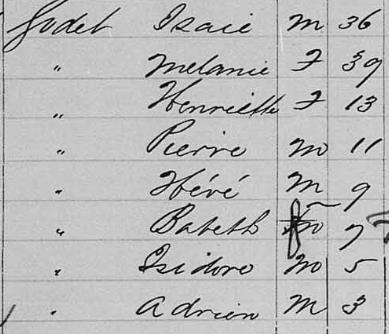 Godet Isaie M 36
" Melanie F 39
" Henriette F 13
" Pierre M 11
" Hévé M 9
" Babeth f 7
" Isidore M 5
" Adrien M 3